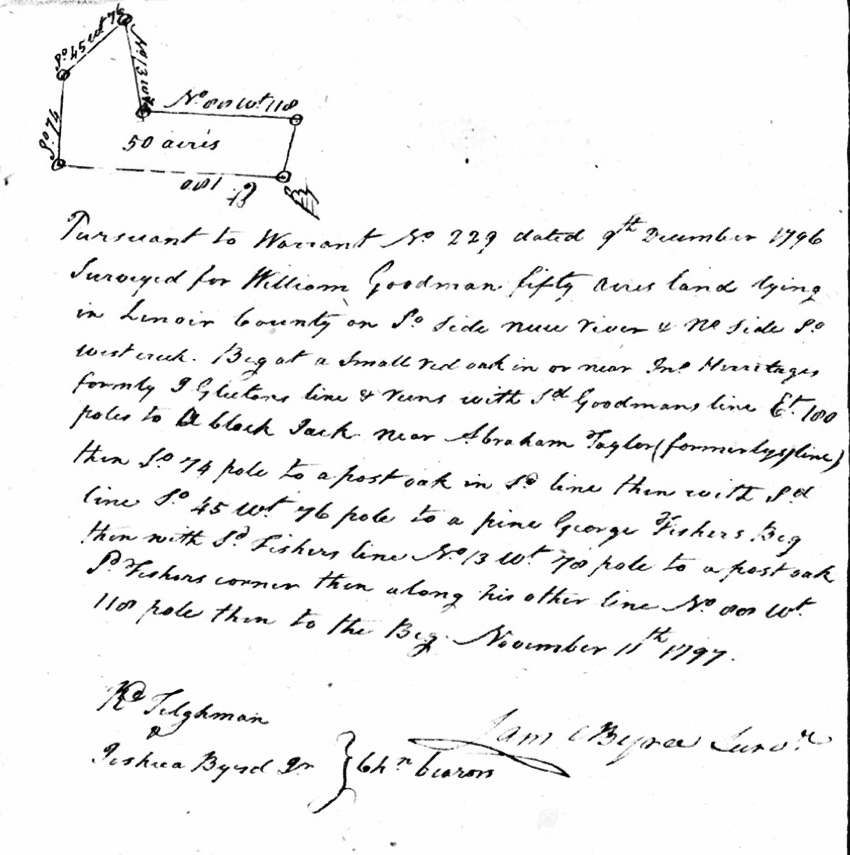 So 45 Wt 76
No 13 Wt 78
No 88 Wt 118
So 74
50 acres
Et 180
Pursuant to Warrant No 229 dated 9th December 1796
Surveyed for William Goodman fifty acres land lying
in Lenoir County on So side neuse river & No side So
west creek. Beg at a Small red oak in or near Jno Herritages
formly J Gleetons line & runs with Sd Goodmans line Et 180
poles to a black Jack near Abraham Taylor (formerlys) line)
then So 74 pole to a post oak in Sd line then with Sd
line So 45 Wt 76 pole to a pine George Fishers Beg
then with Sd Fishers line No 13 Wt 78 pole to a post oak
Sd Fishers corner then along his other line No 88 Wt
118 pole then to the Beg. November 11th 1797.
Rd Tilghman
&
Joshua Byrd Jr } Chn bearors
Survr